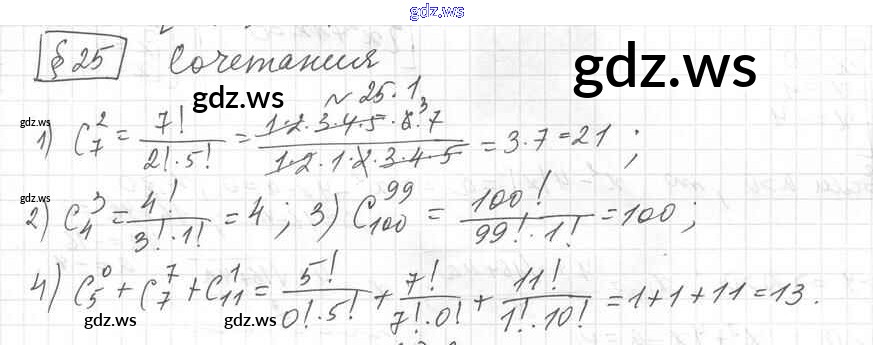 gdz.ws
§ 25 Сочетания
gdz.ws
gdz.ws
№ 25.1
gdz.ws
1) C₇² = 7! / (2! · 5!) = (1·2·3·4·5·6³·7) / (1·2·1·2·3·4·5) = 3·7 = 21 ;
gdz.ws
2) C₄³ = 4! / (3! · 1!) = 4 ; 3) C₁₀₀⁹⁹ = 100! / (99! · 1!) = 100 ;
4) C₅⁰ + C₇⁷ + C₁₁¹ = 5! / (0! · 5!) + 7! / (7! · 0!) + 11! / (1! · 10!) = 1 + 1 + 11 = 13 .
gdz.ws gdz.ws